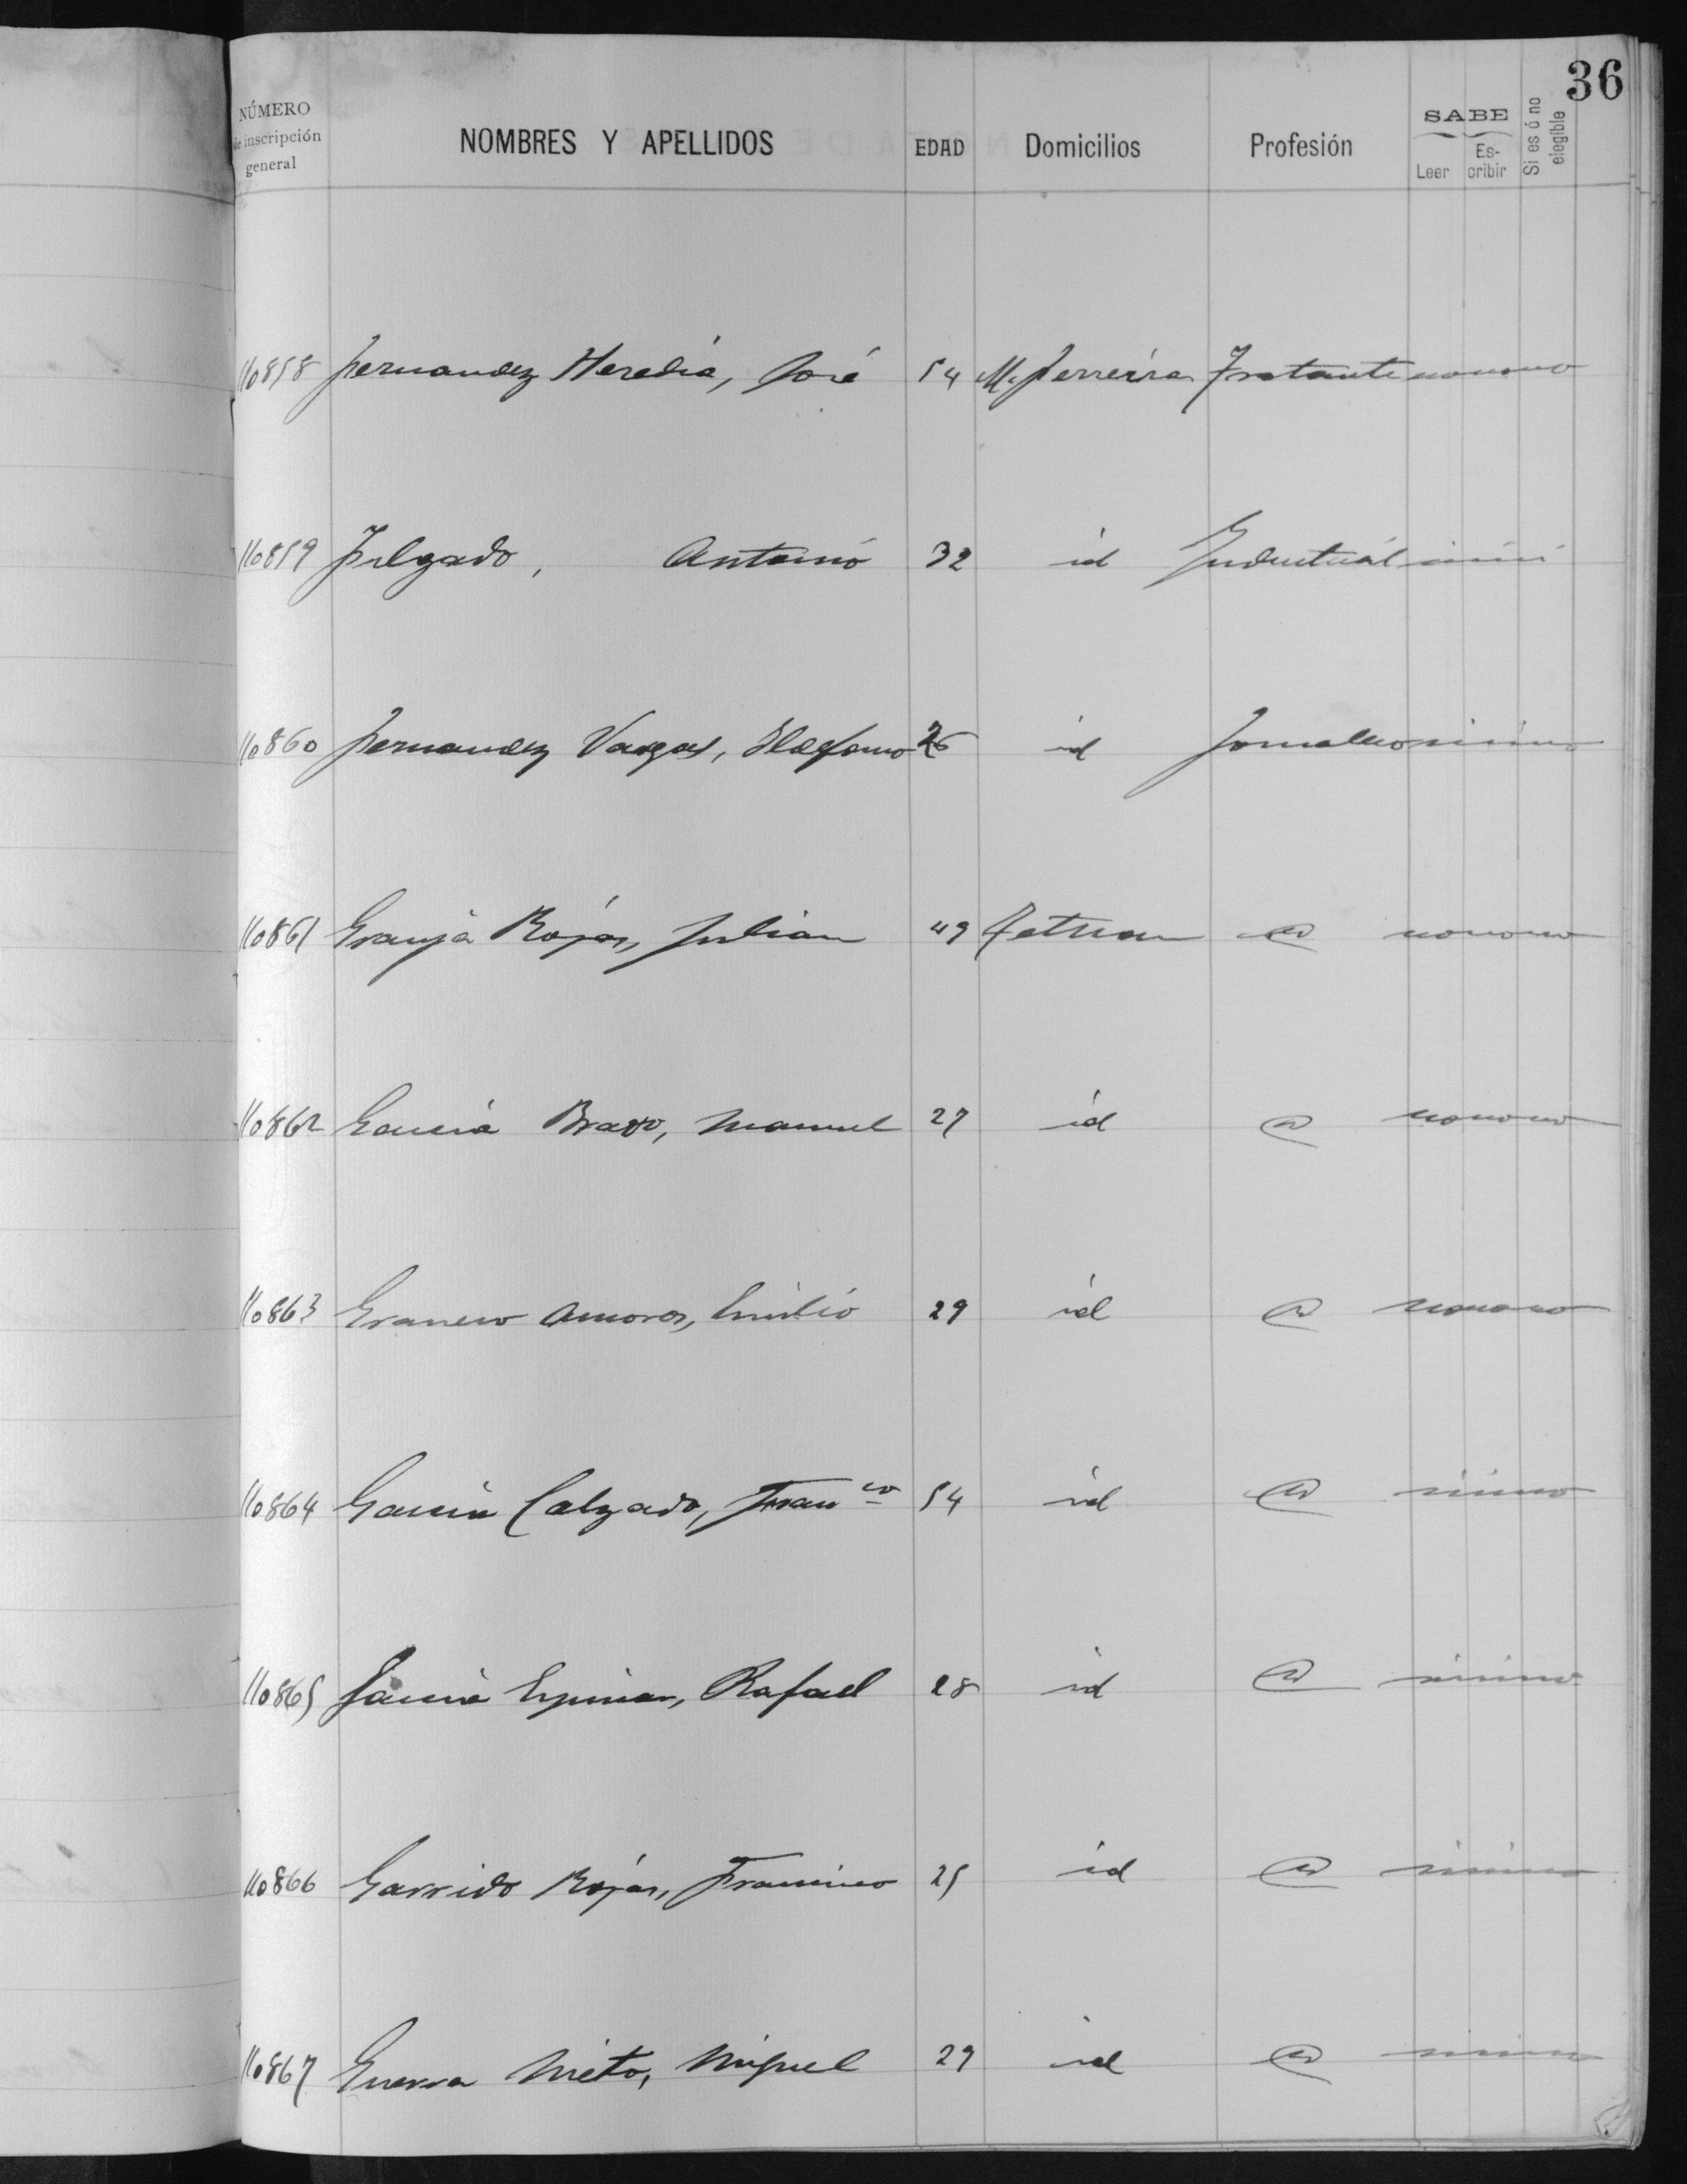 36
NÚMERO de inscripción general NOMBRES Y APELLIDOS EDAD Domicilios Profesión SABE Leer Escribir Si es ó no elegible
110858 Fernandez Heredia, José 54 M. Ferreira Tratante no no no
110859 Fulgado, Antonio 32 id Industrial si si si
110860 Fernandez Vargas, Ildefonso 26 id Jornalero si si no
110861 Granja Rojas, Julian 49 Tetuan @ no no no
110862 Garcia Bravo, Manuel 27 id @ no no no
110863 Granero Amoros, Emilio 29 id @ no no no
110864 Garcia Calzado, Franco 54 id @ si si no
110865 Garcia Espinar, Rafael 28 id @ si si no
110866 Garrido Rojas, Francisco 25 id @ si si no
110867 Guerra Nieto, Miguel 29 id @ si si no